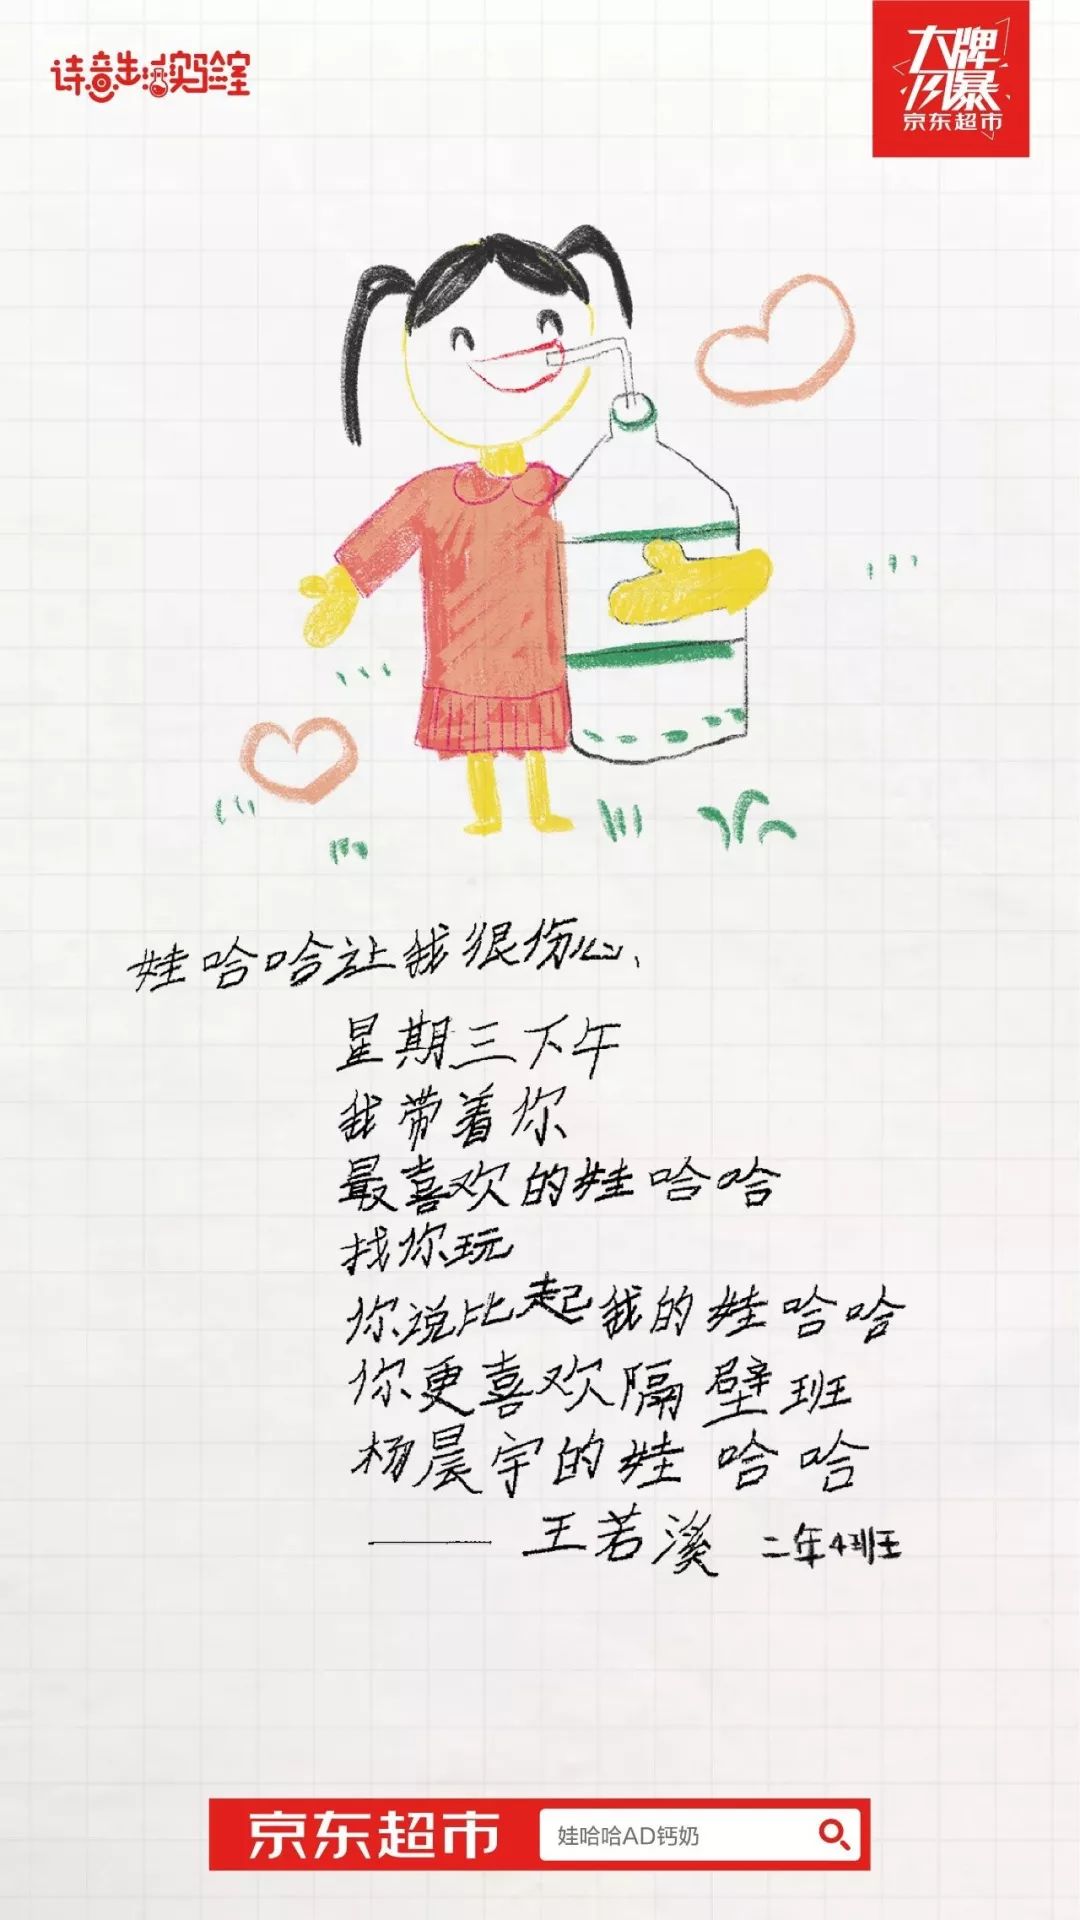 诗意生活实验室
大牌
风暴
京东超市
娃哈哈让我很伤心、
星期三下午
我带着你
最喜欢的娃哈哈
找你玩
你说比起我的娃哈哈
你更喜欢隔壁班
杨晨宇的娃哈哈
——王若溪 二年4班
京东超市 娃哈哈AD钙奶